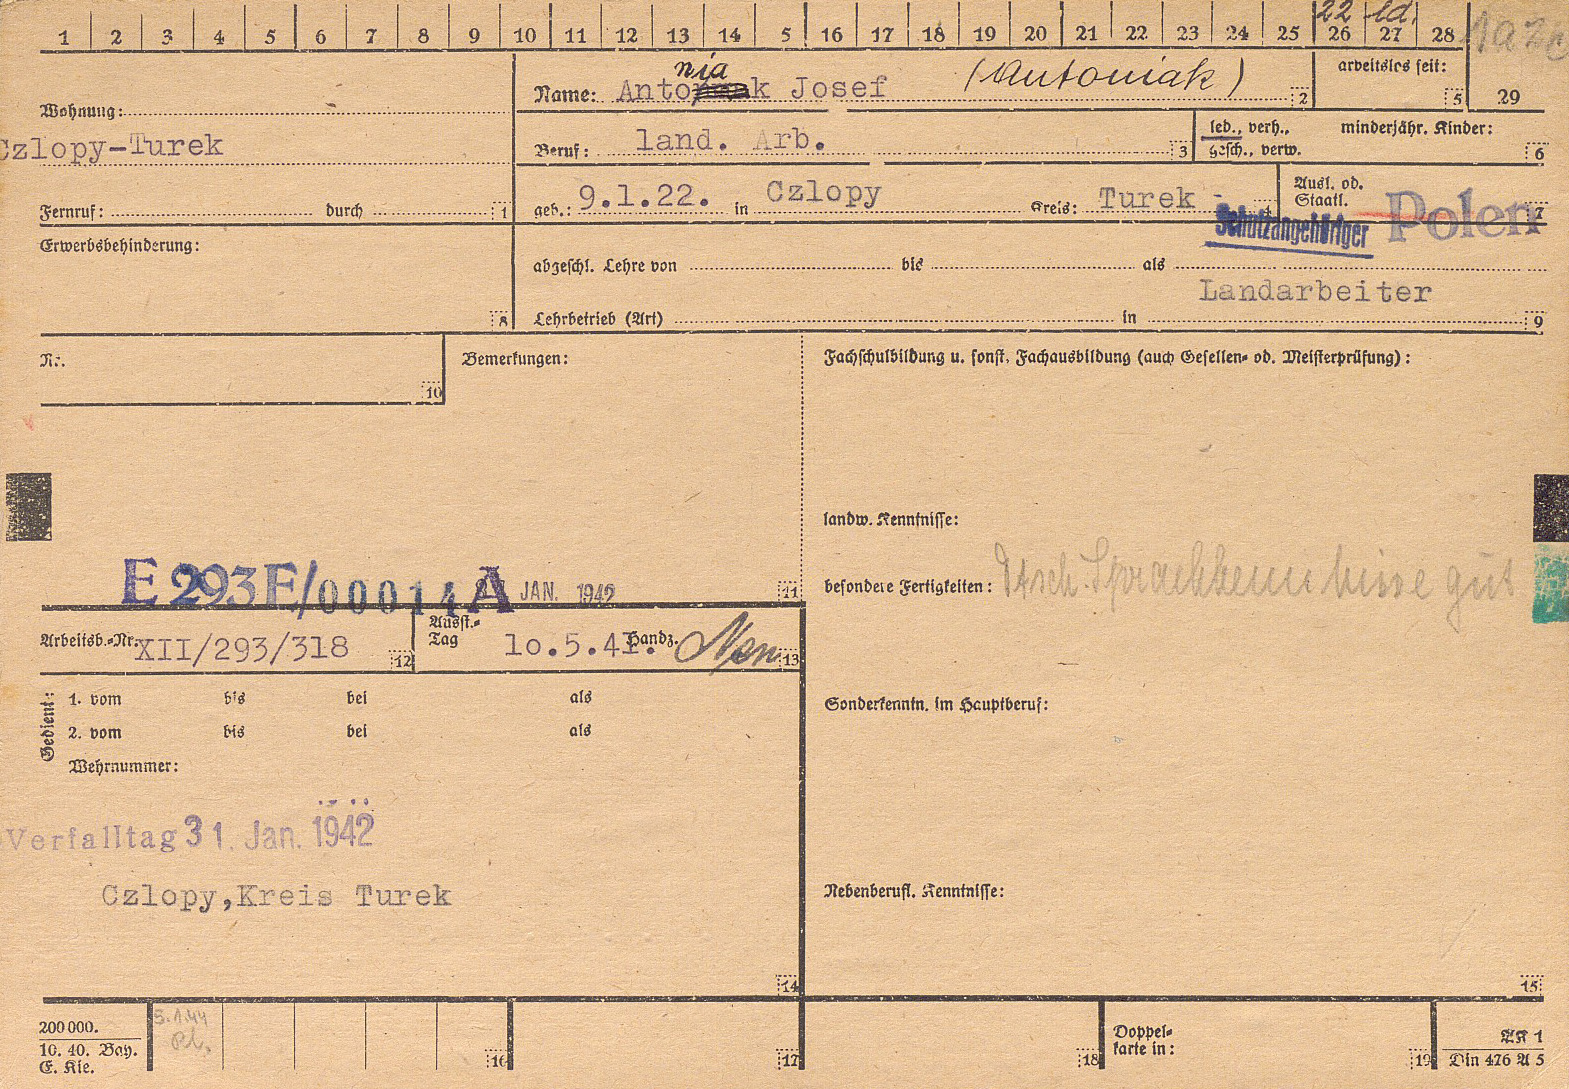 1 2 3 4 5 6 7 8 9 10 11 12 13 14 5 16 17 18 19 20 21 22 23 24 25 26 27 28
22 ld.
Wohnung:
Czlopy-Turek
Fernruf: durch 1
Name: Antoniak Josef (Antoniak) 2
arbeitslos seit: 5 29
Beruf: land. Arb. 3
led., verh., gesch., verw.
minderjähr. Kinder: 6
geb.: 9.1.22. in Czlopy Kreis: Turek - 4
Ausl. od. Staatl. Polen 7
Schutzangehöriger
Erwerbsbehinderung: 8
abgeschl. Lehre von bis als
Landarbeiter
Lehrbetrieb (Art) in 9
Nr. 10
Bemerkungen:
Fachschulbildung u. sonst. Fachausbildung (auch Gesellen- od. Meisterprüfung):
landw. Kenntnisse:
E 293E/00014 A JAN. 1942 11
besondere Fertigkeiten: dtsch. Sprachkenntnisse gut
Arbeitsb.-Nr. XII/293/318 12
Ausst.-Tag 10.5.41. Handz. 13
Gedient:
1. vom bis bei als
2. vom bis bei als
Wehrnummer:
Sonderkenntn. im Hauptberuf:
Verfalltag 31. Jan. 1942
Czlopy,Kreis Turek
14
Nebenberufl. Kenntnisse:
15
200 000.
10. 40. Bay.
E. Kie.
5.1.44
16 17 18
Doppelkarte in: 19
AK 1
Din 476 A 5